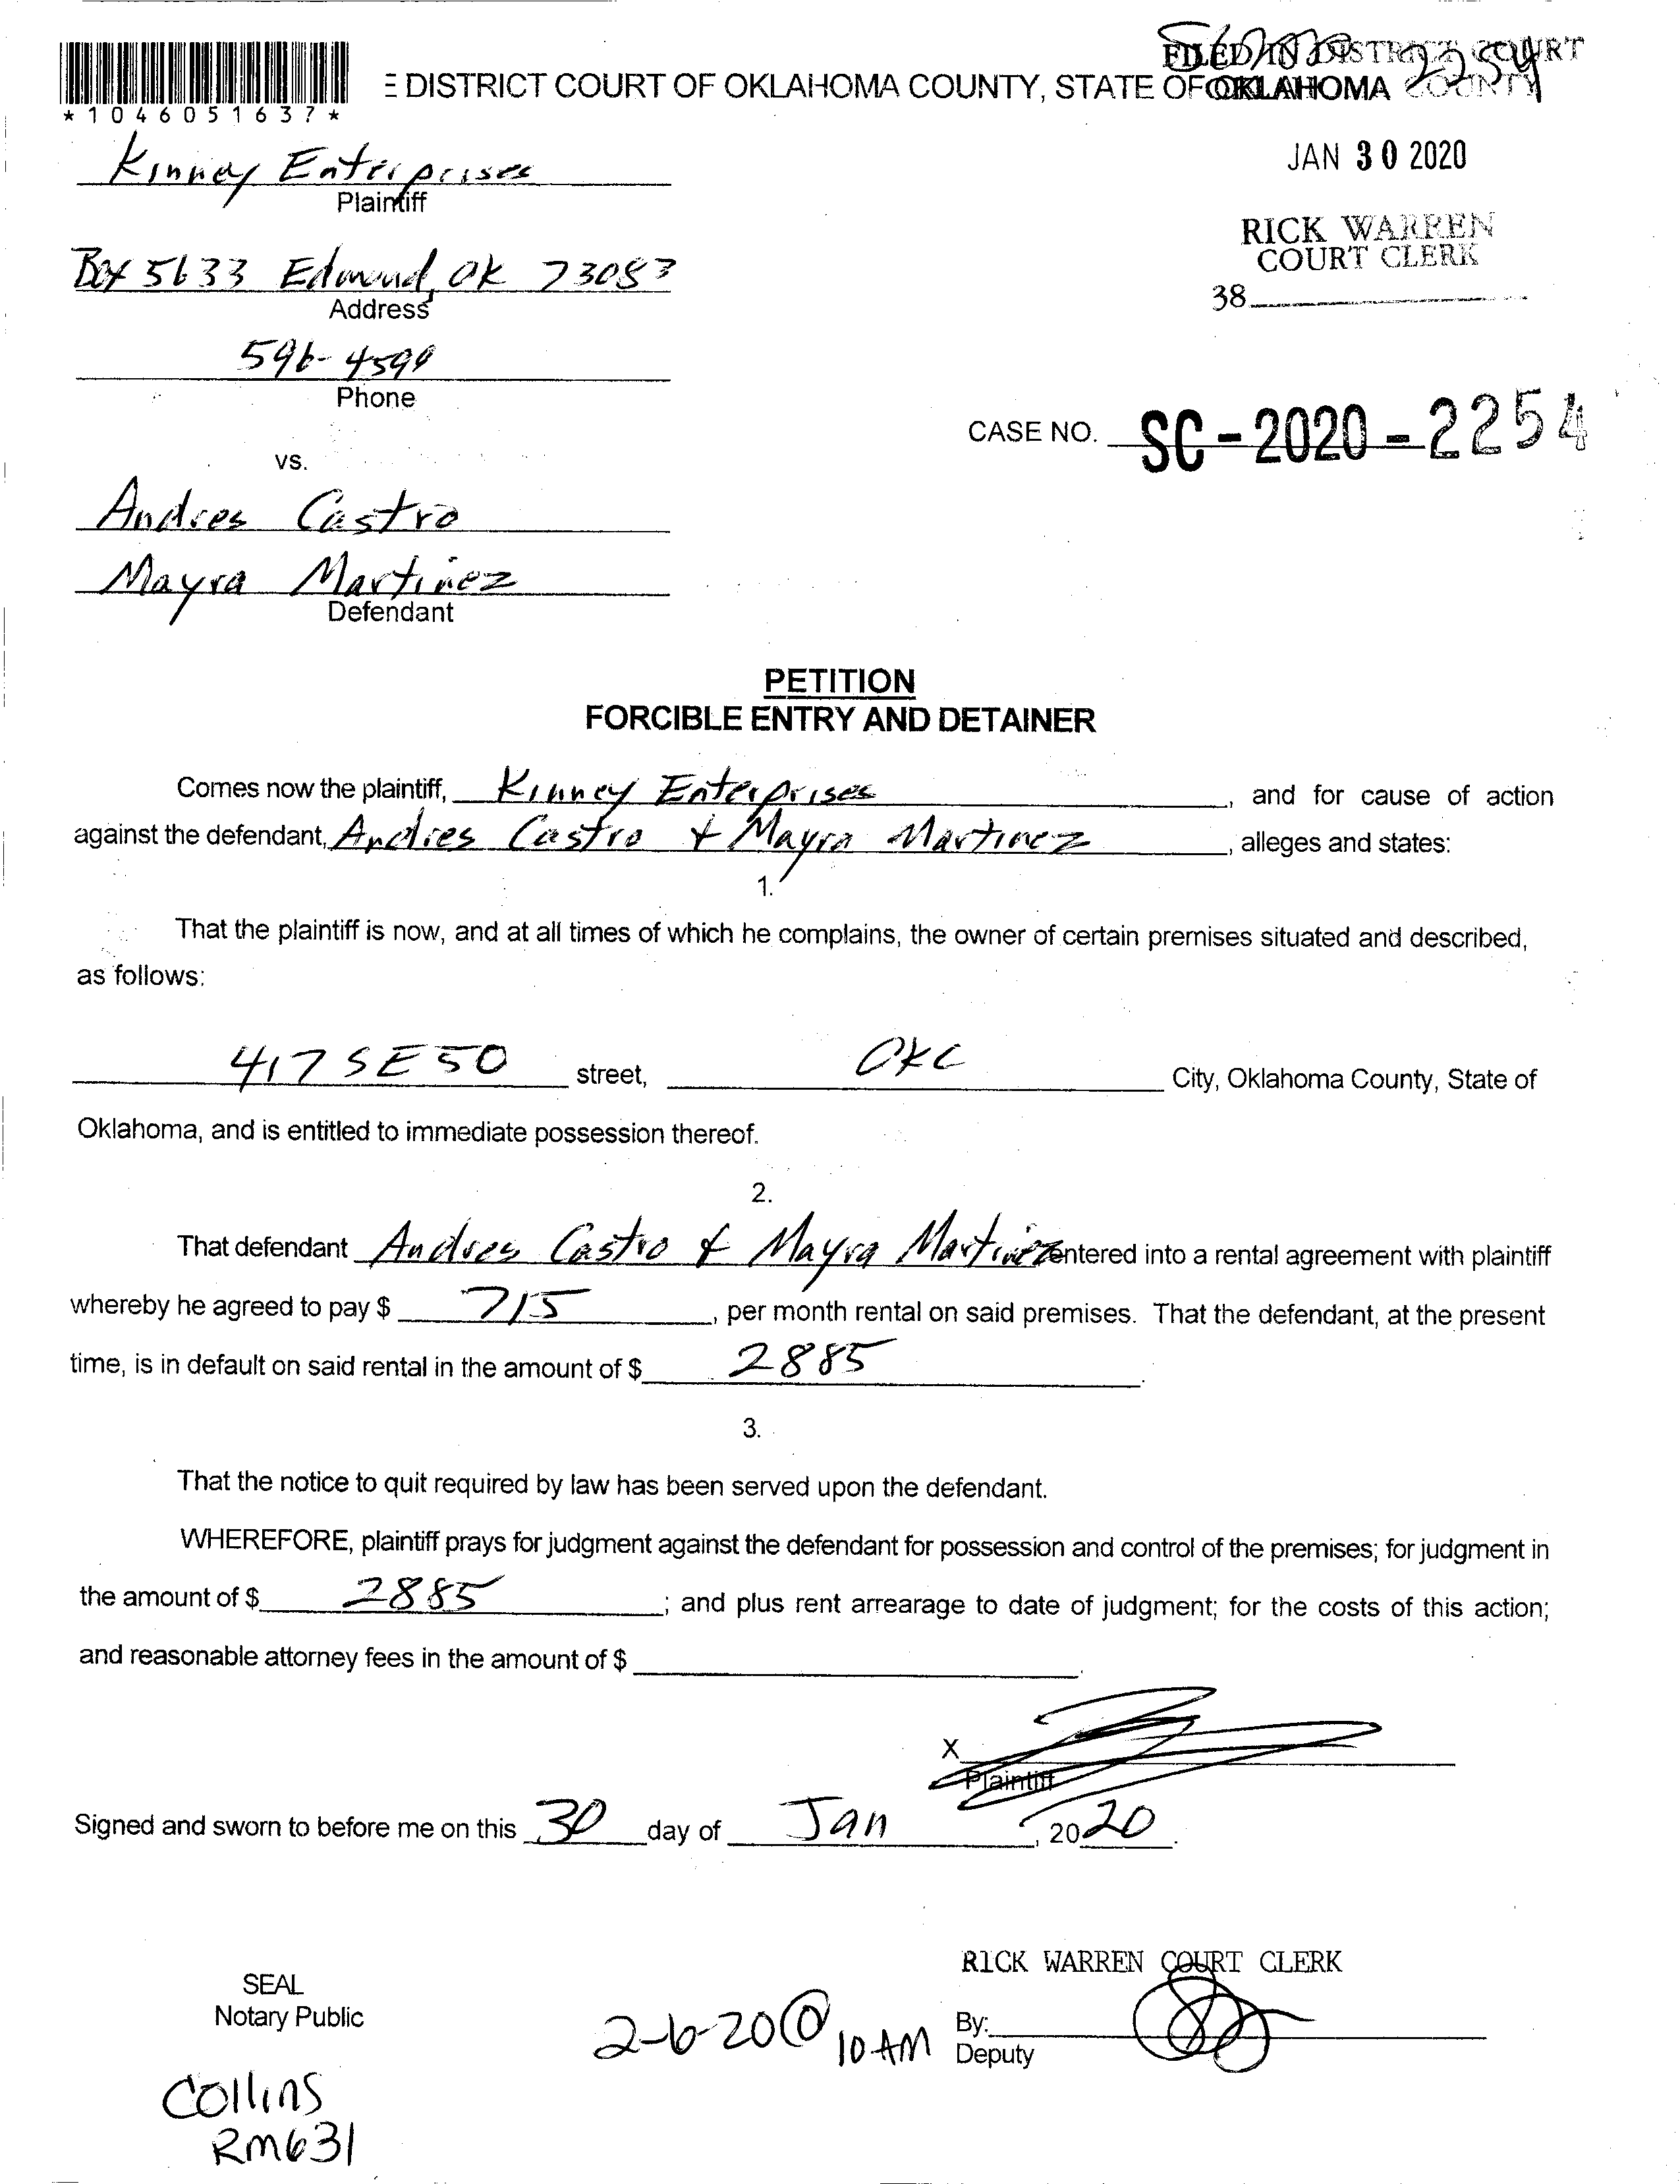 SC2020 2254
FILED IN DISTRICT COURT
DISTRICT COURT OF OKLAHOMA COUNTY, STATE OF OKLAHOMA
OKLAHOMA COUNTY
*1046051637*
JAN 30 2020
Kinney Enterprises
Plaintiff
RICK WARREN
COURT CLERK
Box 5633 Edmond, OK 73083
Address
38
596-4599
Phone
CASE NO. SC-2020-2254
vs.
Andres Castro
Mayra Martinez
Defendant
PETITION
FORCIBLE ENTRY AND DETAINER
Comes now the plaintiff, Kinney Enterprises, and for cause of action
against the defendant, Andres Castro & Mayra Martinez, alleges and states:
1.
That the plaintiff is now, and at all times of which he complains, the owner of certain premises situated and described,
as follows:
417 SE 50 street, OKC City, Oklahoma County, State of
Oklahoma, and is entitled to immediate possession thereof.
2.
That defendant Andres Castro & Mayra Martinez entered into a rental agreement with plaintiff
whereby he agreed to pay $ 715, per month rental on said premises. That the defendant, at the present
time, is in default on said rental in the amount of $ 2885.
3.
That the notice to quit required by law has been served upon the defendant.
WHEREFORE, plaintiff prays for judgment against the defendant for possession and control of the premises; for judgment in
the amount of $ 2885; and plus rent arrearage to date of judgment; for the costs of this action;
and reasonable attorney fees in the amount of $ .
X
Plaintiff
Signed and sworn to before me on this 30 day of Jan, 2020.
RICK WARREN COURT CLERK
SEAL
Notary Public
2-6-20@ 10 AM
By:
Deputy
Collins
RM631